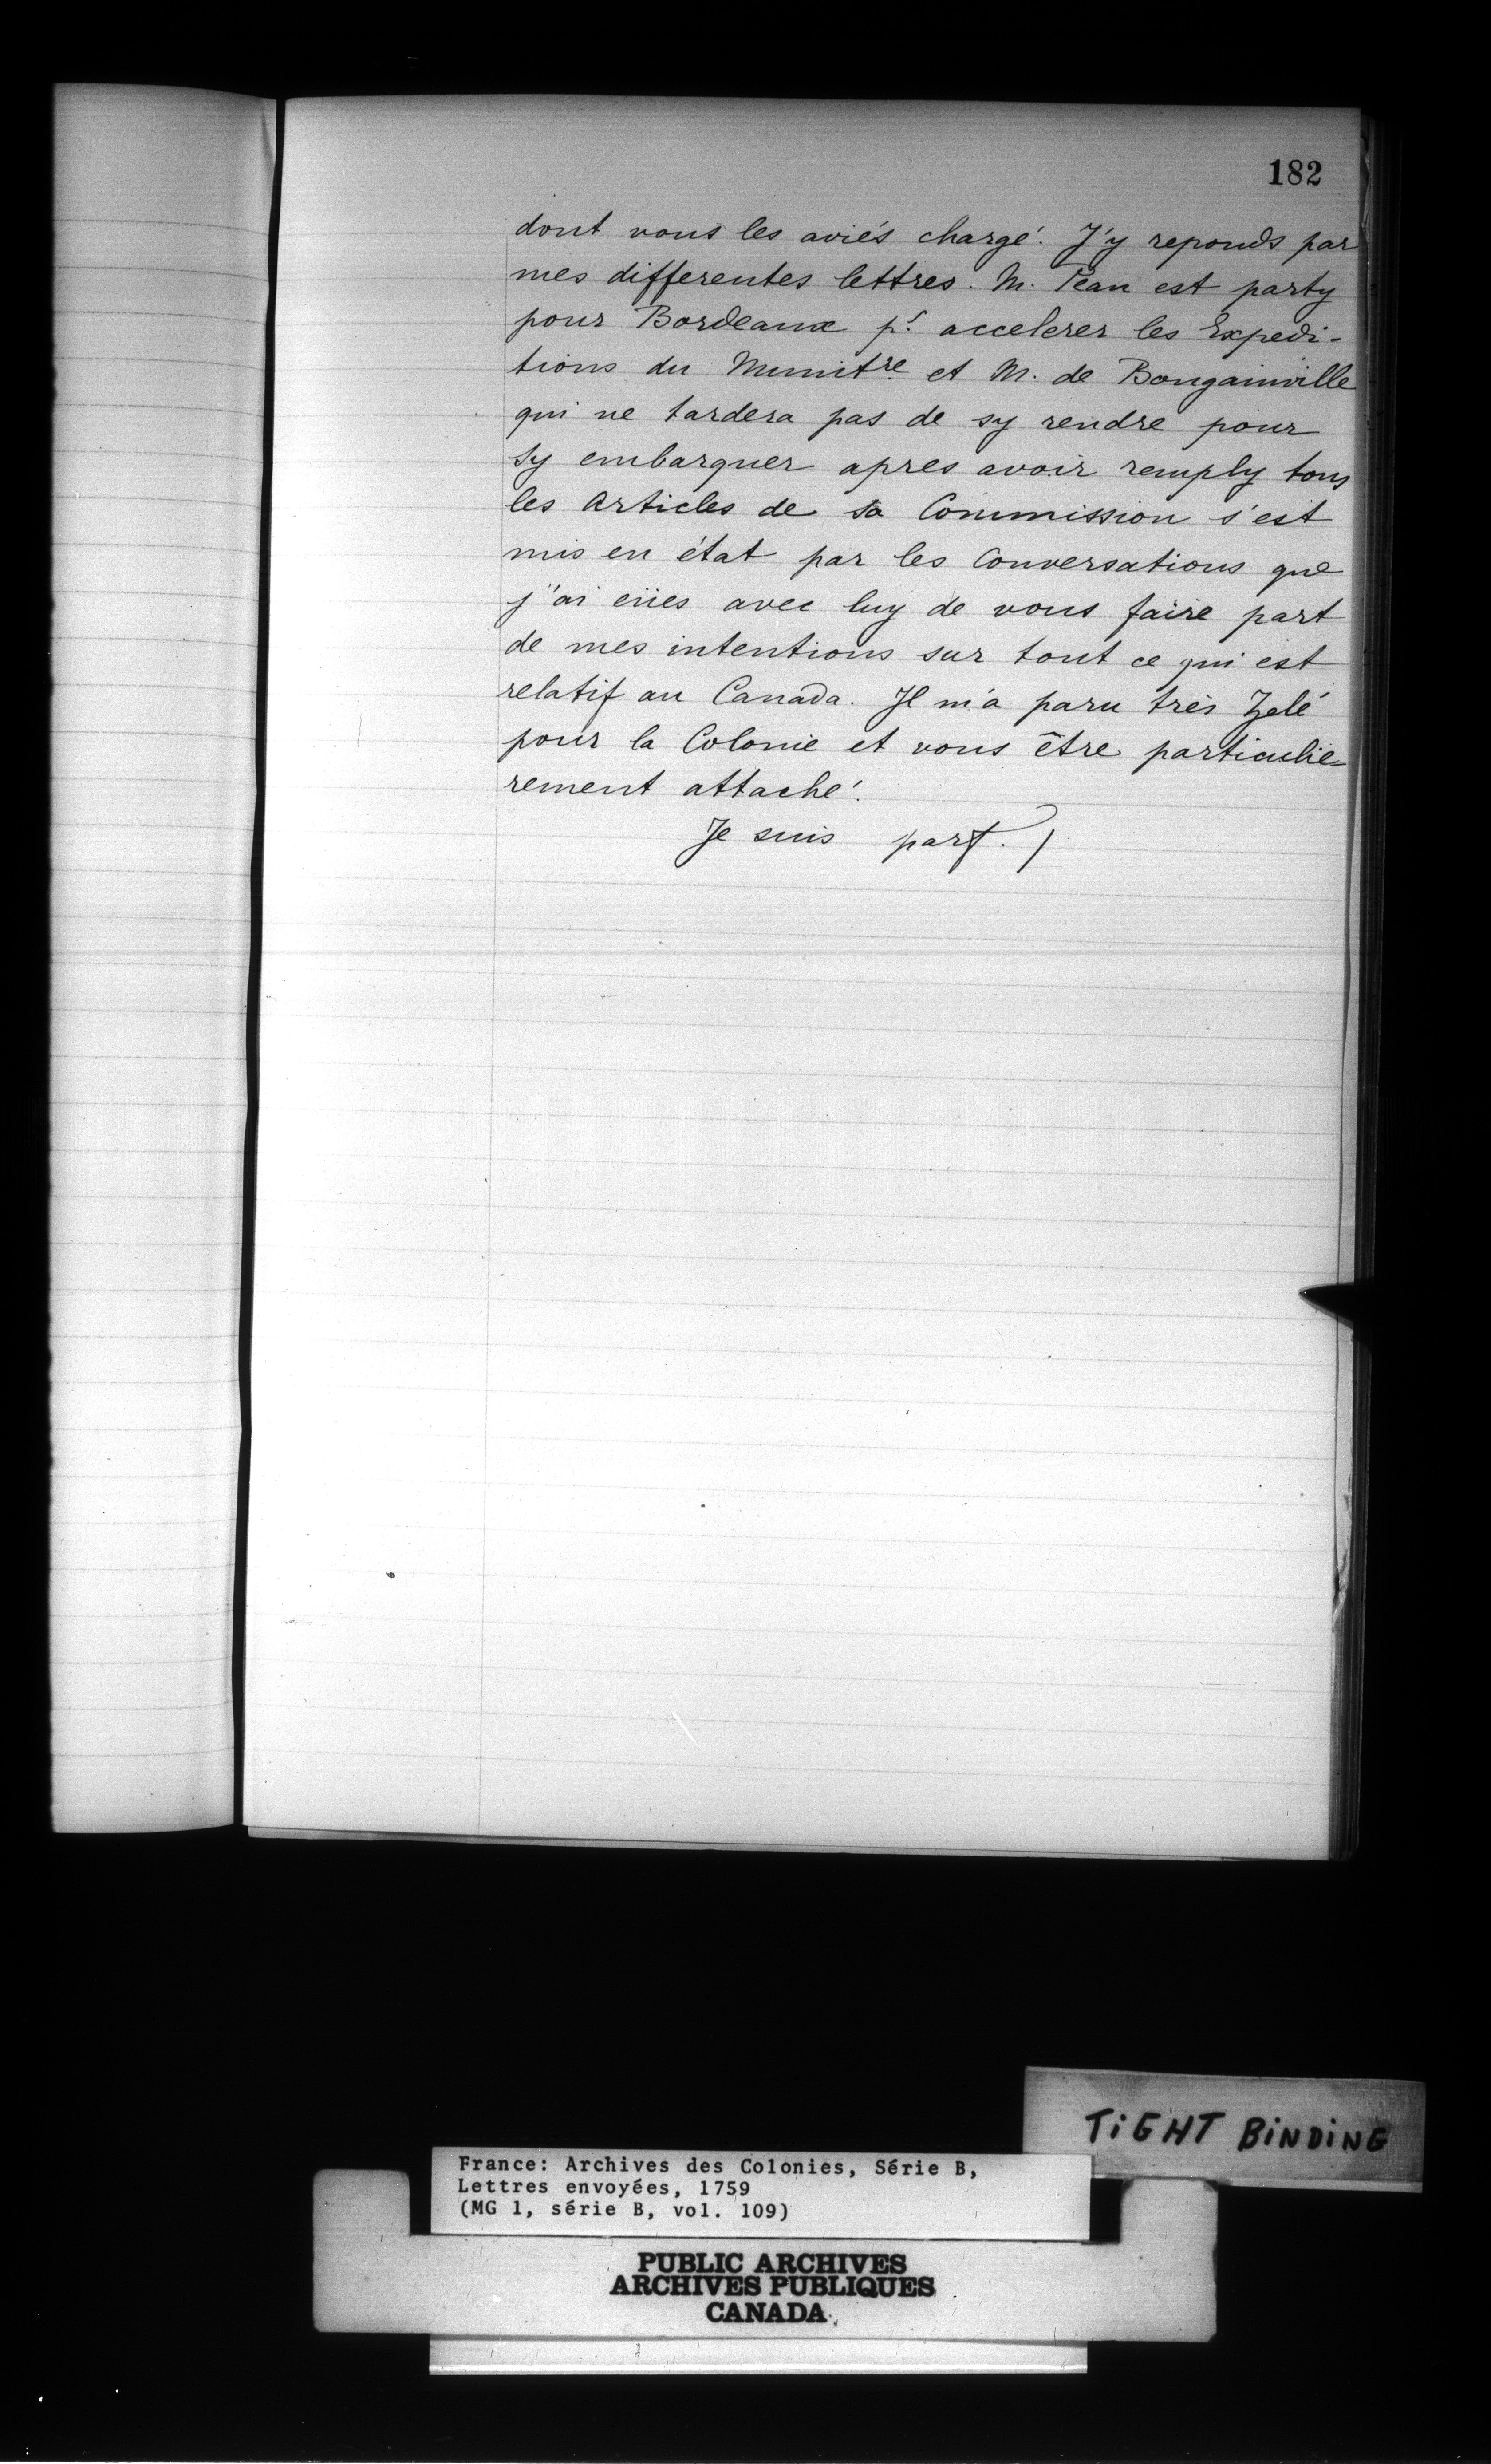 182
dont vous les aviés chargé. J'y reponds par
mes differentes lettres. M. Pean est party
pour Bordeaux pr. accelerer les Expedi-
tions du Munitre et M. de Bougainville
qui ne tardera pas de sy rendre pour
sy embarquer apres avoir remply tous
les Articles de sa Commission s'est
mis en état par les Conversations que
j'ai eües avec luy de vous faire part
de mes intentions sur tout ce qui est
relatif au Canada. Il m'a paru très Zelé
pour la Colonie et vous être particulie-
rement attaché.
Je suis part.
TiGHT BiNDiNG
France: Archives des Colonies, Série B,
Lettres envoyées, 1759
(MG 1, série B, vol. 109)
PUBLIC ARCHIVES
ARCHIVES PUBLIQUES
CANADA